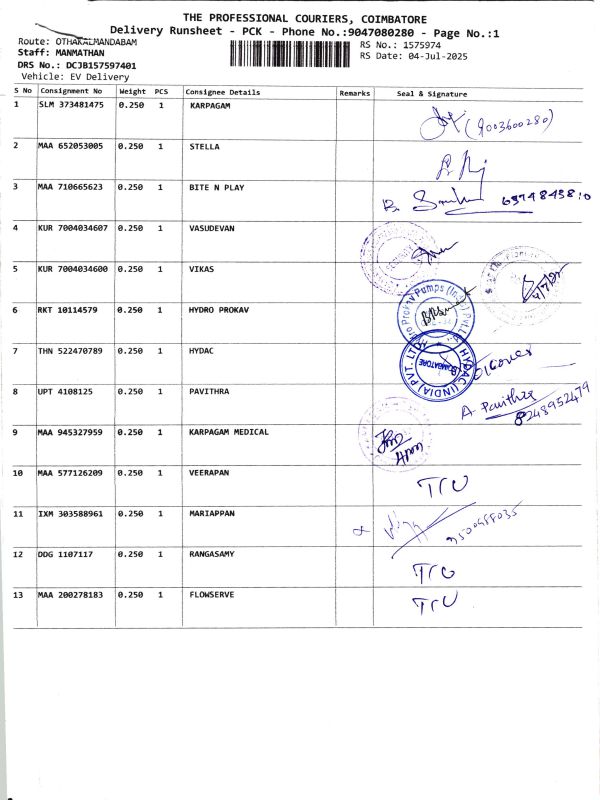 THE PROFESSIONAL COURIERS, COIMBATORE
Delivery Runsheet - PCK - Phone No.:9047080280 - Page No.:1
Route: OTHAKALMANDABAM
RS No.: 1575974
Staff: MANMATHAN
RS Date: 04-Jul-2025
DRS No.: DCJB157597401
Vehicle: EV Delivery
S No Consignment No Weight PCS Consignee Details Remarks Seal & Signature
1 SLM 373481475 0.250 1 KARPAGAM
(9003600280)
2 MAA 652053005 0.250 1 STELLA
3 MAA 710665623 0.250 1 BITE N PLAY
4 KUR 7004034607 0.250 1 VASUDEVAN
5 KUR 7004034600 0.250 1 VIKAS
6 RKT 10114579 0.250 1 HYDRO PROKAV
Prokav Pumps (India) Pvt.
7 THN 522470789 0.250 1 HYDAC
HYDAC (INDIA) PVT. LTD.
COIMBATORE
8 UPT 4108125 0.250 1 PAVITHRA
A. Pavithra
8248952479
9 MAA 945327959 0.250 1 KARPAGAM MEDICAL
10 MAA 577126209 0.250 1 VEERAPAN
11 IXM 303588961 0.250 1 MARIAPPAN
12 DDG 1107117 0.250 1 RANGASAMY
13 MAA 200278183 0.250 1 FLOWSERVE